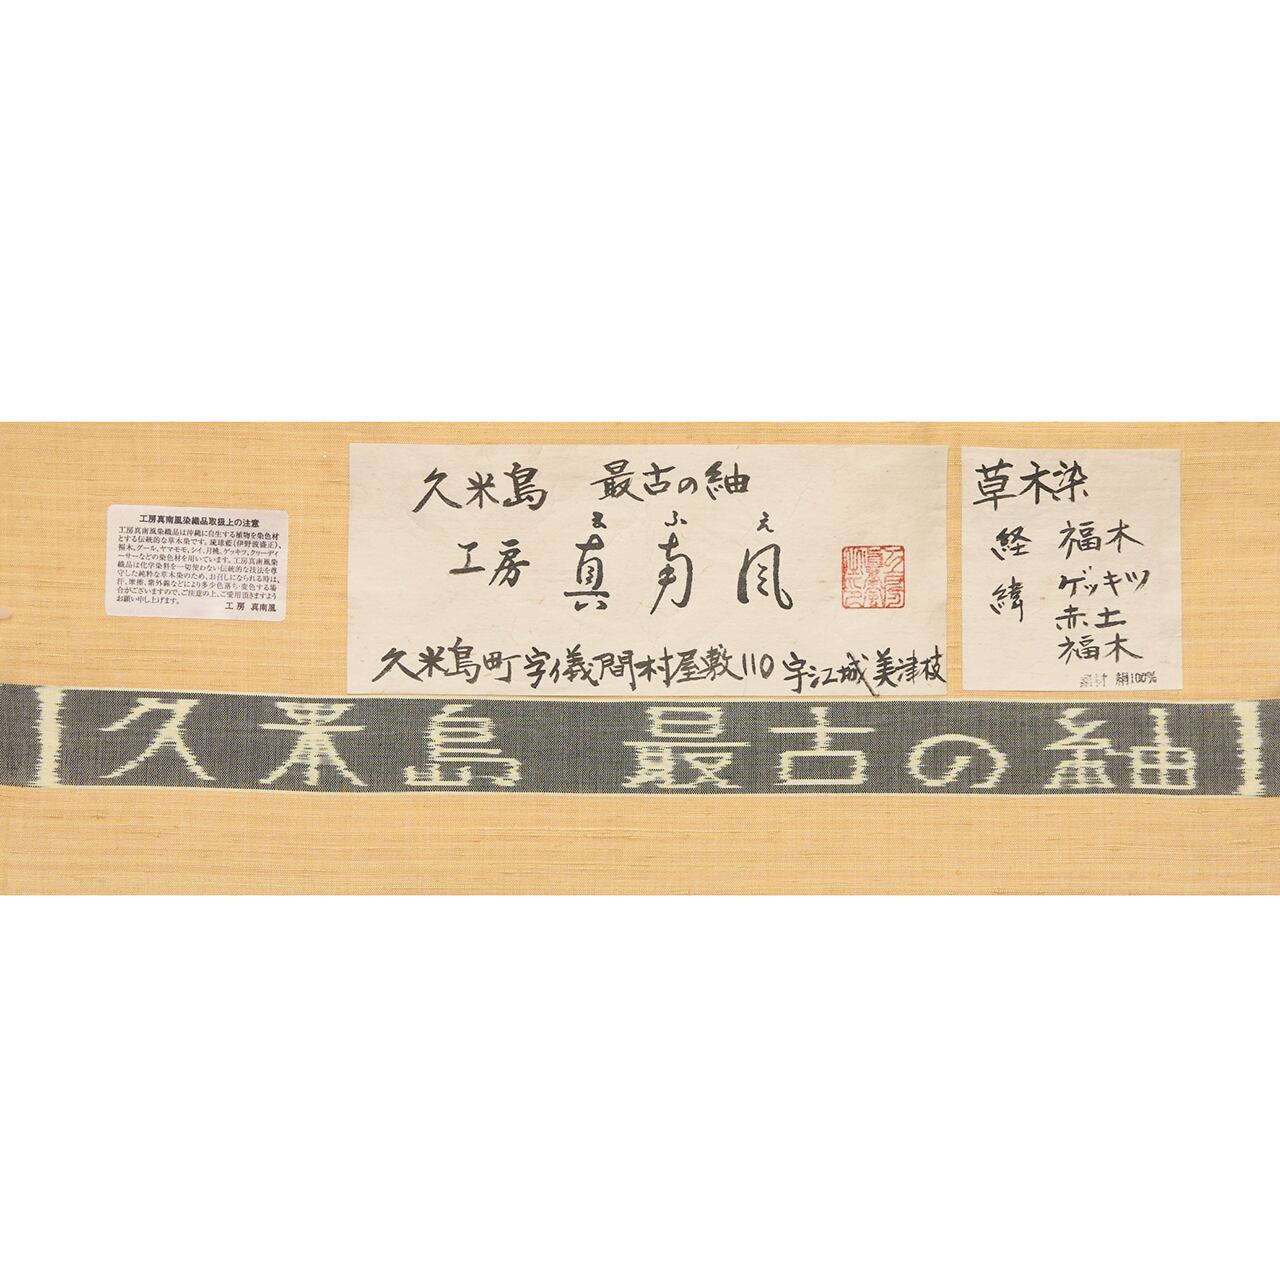 工房真南風染織品取扱上の注意
工房真南風染織品は沖縄に自生する植物を染色材
とする伝統的な草木染です。琉球藍(伊野波盛正)、
福木、グール、ヤマモモ、シイ、月桃、ゲッキツ、クリーディ
ーサーなどの染色材を用いています。工房真南風染
織品は化学染料を一切使わない伝統的な技法を尊
守した純粋な草木染のため、お召しになられる時は、
汗、摩擦、紫外線などにより多少色落ち・変色する場
合がございますので、ご注意の上、ご愛用頂きますよう
お願い申し上げます。
工房 真南風
久米島 最古の紬
まふえ
工房 真南風
久米島町字儀間村屋敷110 宇江城美津枝
草木染
経 福木
緯 ゲッキツ
赤土
福木
絹100%
久米島 最古の紬